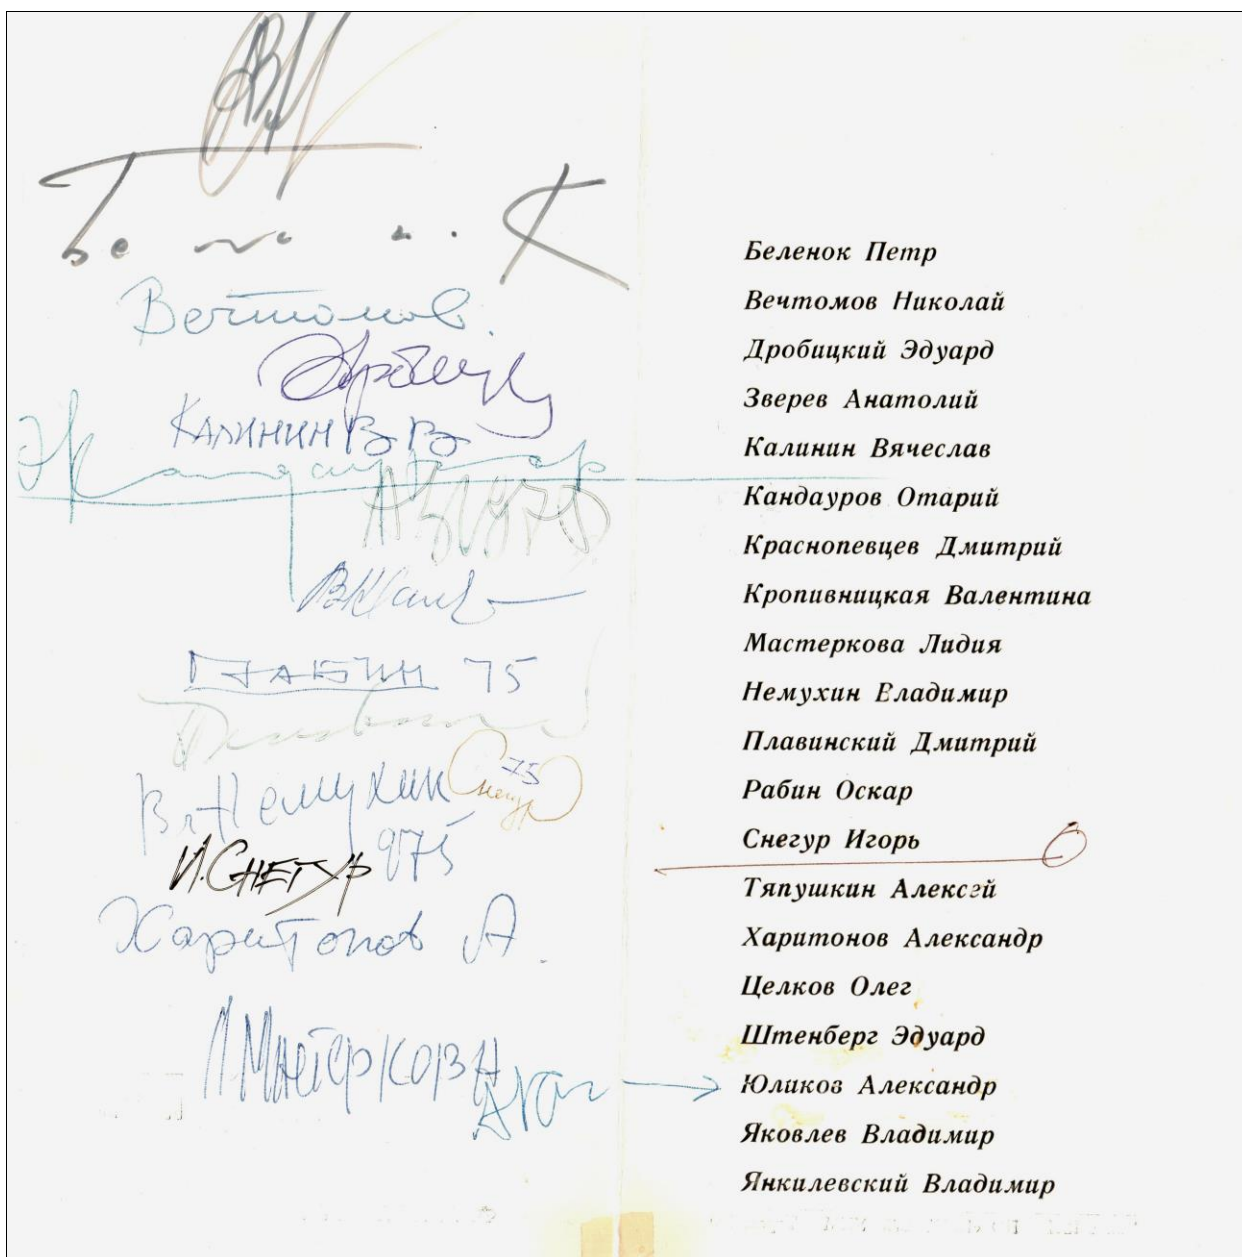 Вечтомов.
КАЛИНИН В В
РАБИН 75
Вл Немухин
Снегур
75
И. СНЕГУР 975
Харитонов А.
Л МАСТЕРКОВА
Беленок Петр
Вечтомов Николай
Дробицкий Эдуард
Зверев Анатолий
Калинин Вячеслав
Кандауров Отарий
Краснопевцев Дмитрий
Кропивницкая Валентина
Мастеркова Лидия
Немухин Владимир
Плавинский Дмитрий
Рабин Оскар
Снегур Игорь
Тяпушкин Алексей
Харитонов Александр
Целков Олег
Штенберг Эдуард
Юликов Александр
Яковлев Владимир
Янкилевский Владимир